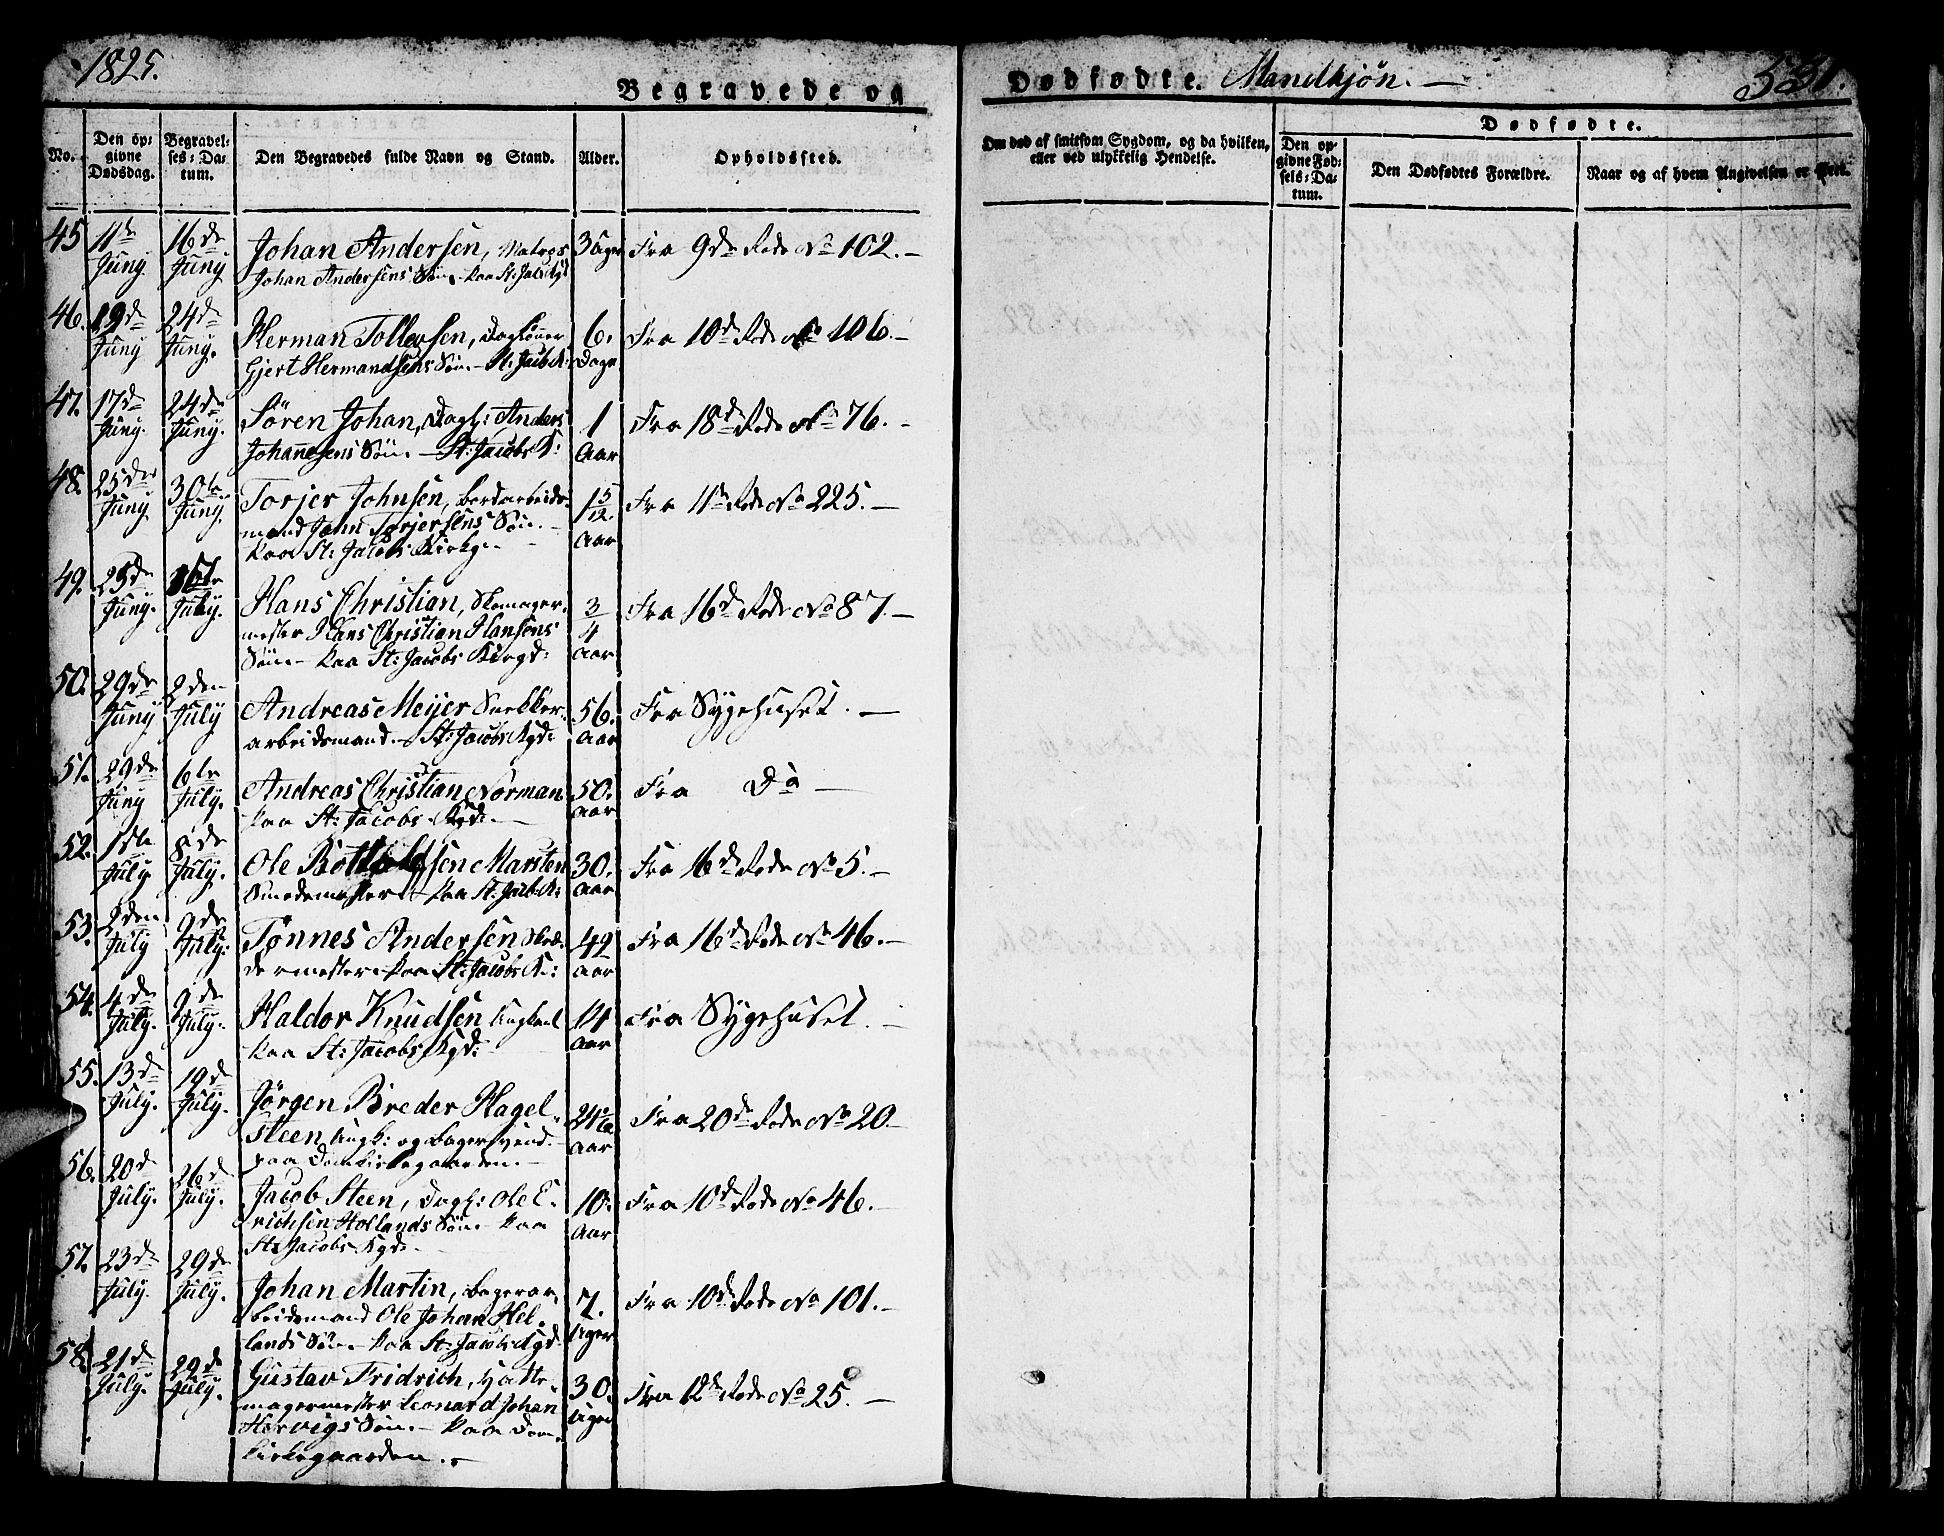 1825.
Begravede og
Dødfødte. Mandkjøn. —
551.
No.
Den opgivne Dødsdag.
Begravelses-Datum.
Den Begravedes fulde Navn og Stand.
Alder.
Opholdssted.
Om død af smitsom Sygdom, og da hvilken, eller ved ulykkelig Hendelse.
Dødfødte.
Den opgivne Fødsels-Datum.
Den Dødfødtes Forældre.
Naar og af hvem Angivelsen er skeet.
45 11te Juny 16de Juny Johan Andersen, Matros
Johan Andersens Søn. paa St: Jac: Kgd 3 Uger Fra 9de Rode No 102. —
46. 19de Juny 24de Juny. Herman Tollevsen, Dagl
Gjert Hermandsens Søn. – St: Jacobs K: 6. Dage Fra 10de Rode No 106. —
47. 17de Juny. 24de Juny. Sören Johan, Dagl: Anders
Johannesens Søn. — St: Jacobs K: 1 Aar Fra 18de Rode No 76. —
48. 25de Juny 30te Juny Torjer Johnsen, bordarbeids-
mand John Torjersens Søn. —
paa St: Jacobs Kirkg: — 1 5/12. Aar Fra 11te Rode No 225. —
49. 25de Juny. July. Hans Christian, Skomager-
mester Hans Christian Hansens
Søn. – paa St: Jacobs Kirgd: 3/4 Aar Fra 16de Rode No 87. —
50. 29de Juny 2den July Andreas Meyer Snekker-
arbeidsmand. – St: Jacobs Kgd: 56. Aar Fra Sygehuset. —
51. 29de Juny 6te July. Andreas Christian Norman
paa St: Jacobs Kgd: — 50. Aar Fra Do —
52. 1ste July 8de July. Ole Marsten
Smedemester – paa St: Jacobs K: 30. Aar Fra 16de Rode No 5. —
53. 2den July 9de July: Tønnes Andersen Skræ-
dermester – paa St: Jacobs K: 49 Aar Fra 16de Rode No 46. —
54. 4de July. 9de July. Haldor Knudsen Ungkarl
paa St: Jacobs Kgd: 14 Aar Fra Sygehuset. —
55. 13de July. 19de July. Jørgen Breder Hagel-
steen Ungk: og bagersvend. –
paa Domkirkegaarden. — 24 Aar Fra 20de Rode No 20. —
56. 20de July. 26de July. Jacob Steen, Dagl: Ole E-
richsen Hollands Søn. – paa
St: Jacobs Kgd: — 10. Aar Fra 10de Rode No 46. —
57. 23de July. 29de July. Johan Martin, bagerar-
beidsmand Ole Johan Hel-
lands Søn. – paa St: Jacobs Kgd 7. Uger Fra 10de Rode No 101. —
58. 21de July. 29de July. Gustav Fridrich, Hatte-
magermester Leonard Johan
Hervigs Søn. — paa Dom-
kirkegaarden. — 30. Uger Fra 12de Rode No 25. —